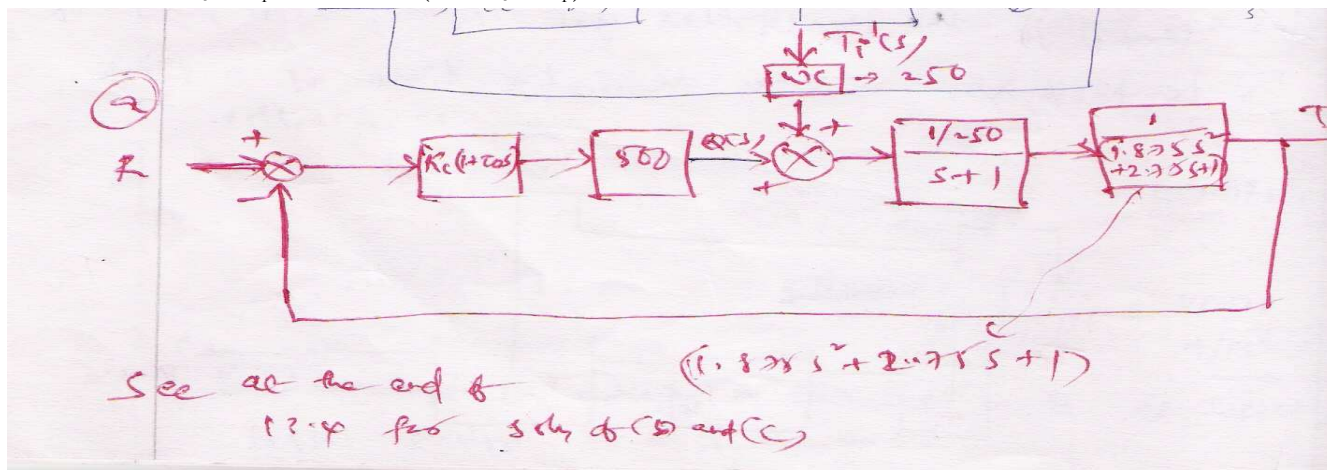 Ti'(s)
wc → 250
a
+
R
Kc(1+τDs)
500
Q(s)
+
+
1/250
s+1
1
(1.875s²
+2.75s+1)
T
(1.875 s² + 2.75 s + 1)
See at the end of
12.4 for soln of (b) and (c)